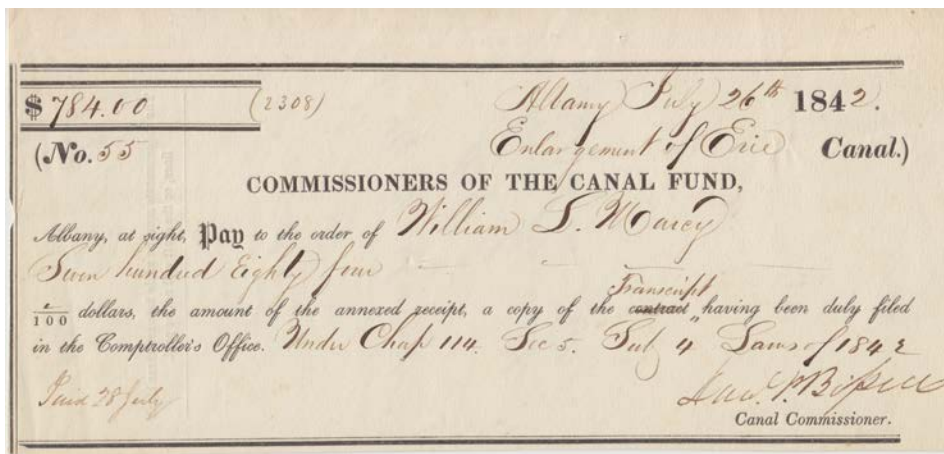 $ 784.00 (2308) Albany July 26th 1842.
(No. 55 Enlargement of Erie Canal.)
COMMISSIONERS OF THE CANAL FUND,
Albany, at sight, Pay to the order of William L. Marcy
Seven hundred Eighty four
Transcript
/100 dollars, the amount of the annexed receipt, a copy of the contract having been duly filed
in the Comptroller's Office. Under Chap 114. Sec 5. Sub 4 Laws of 1842
Paid 28 July
Canal Commissioner.